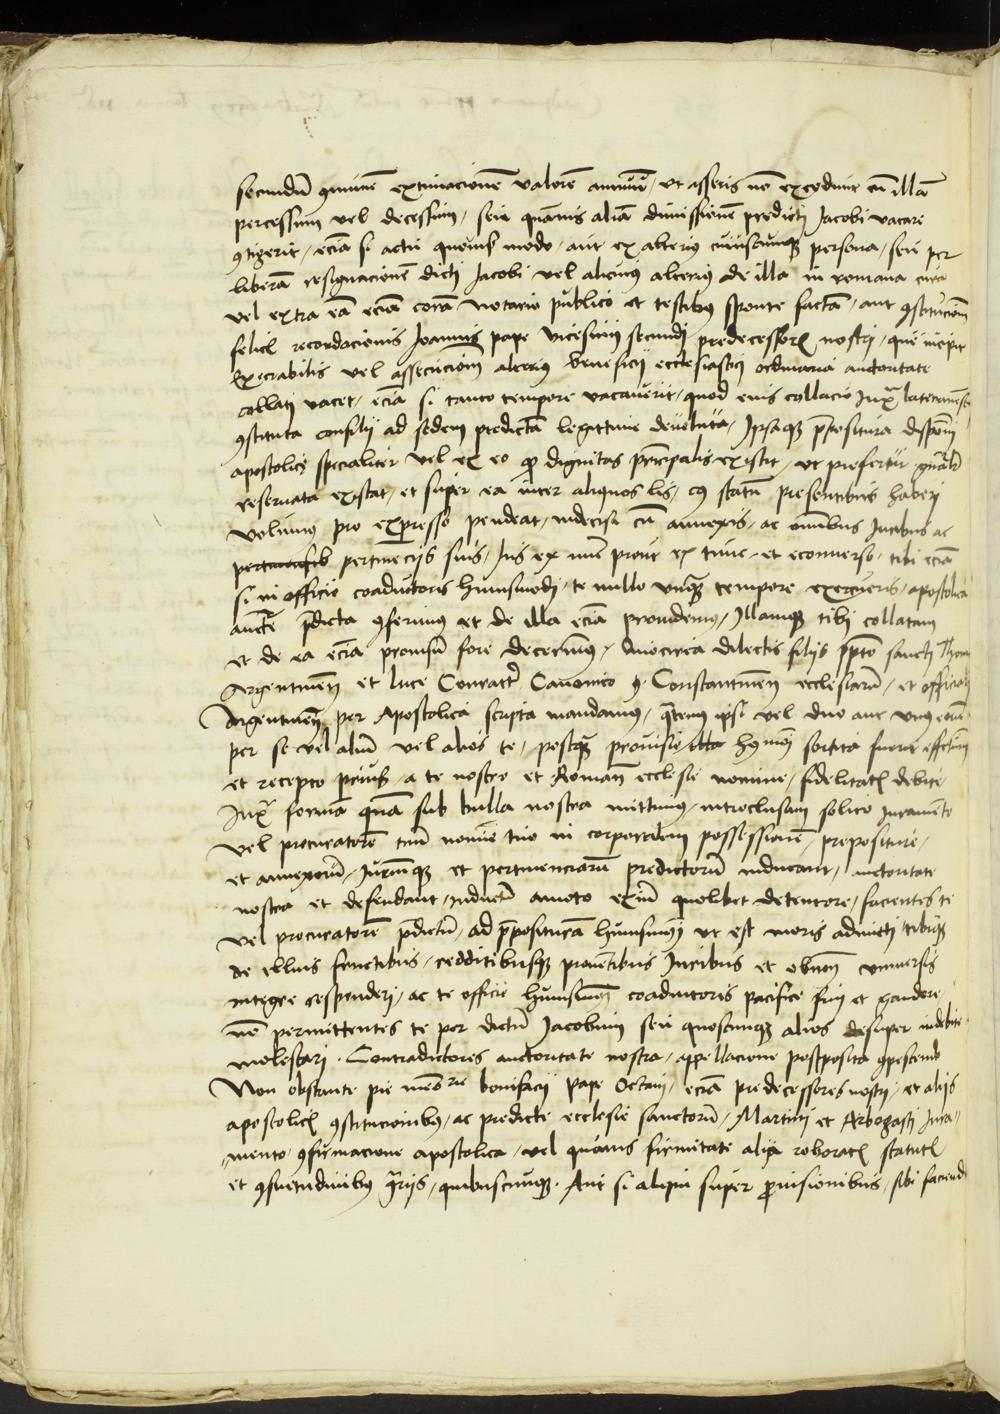 secundū cōmunē extimacionē valorē annuū, vt asseris nō excedunt cū illā
percessum vel decessum, seu quāuis aliā dimissionē predicti Jacobi vacare
ꝯtigerit, eciā si actu quouis modo, aut ex alterius cuiuscunqꝫ persona, seu per
liberā resignacionē dicti Jacobi vel alicuius alterius de illa in romana curia
vel extra eā eciā corā notario publico et testibus sponte factā, aut ꝯstitucionē
felicis recordacionis Joannis pape vicesimi secundi predecessoris nostri, que incipit
Execrabilis vel assecucionē alterius beneficij ecclesiastici ordinaria auctoritate
collati vacet, eciā si tanto tempore vacauerit, quod eius collacio Iuxᵃ lateranensis
ꝯstituta consilij ad sedem predictā legittime deuoluta, Ipsaqꝫ p̄positura dispōni
apostolice specialiter vel ex eo ꝙ dignitas principalis existit, vt prefertur gn̄alr
reseruata existat, et super ea inter aliquos lis, cꝰ statū presentibus haberi
volumus pro expresso pendeat, indecisa cū annexis, ac omnibus Iuribus ac
pertinencijs suis, Ius ex nunc prout ex tunc, et econuerso, tibi eciā
si in officio coadiutoris huiusmodi, te nullo vnqꝫ tempore exercueris, apostolica
aucte p̄dicta ꝯferimus et de illa eciā prouidemus, Illamqꝫ tibi collatam
et de ea eciā prouisū fore decernimus, Quocirca dilectis filijs p̄pto sancti Thome
Argentineñ et luce Conratter Canonico ꝯ Constantineñ ecclesiarū, et officiali
Argentineñ per Apostolica scripta mandamus, q̄tenus ipsi vel duo aut vnus eorū
per se vel aliū vel alios te, postqꝫ prouisio illa hmōi sortita fuerit effectum
et recepto prius, a te nostro et Romane ecclesie nomine, fidelitatis debite
Iuxᵃ formā quā sub bulla nostra mittimus, introclusam solito iuramento
vel procuratorē tuū nomine tuo in corporalem possessionē, prepositure,
et annexorū, Iuriumqꝫ et pertinenciarū predictorū inducant, auctoritate
nostra et defendant, inductū amoto exinde quolibet detentore, facientes te
vel procuratorē p̄dictū, ad p̄posituram huiusmodi vt est moris admitti, tibiqꝫ
de illius fructibus, redditibusqꝫ prouentibus Iuribus et obuen̄ vniuersis
integre responderi, ac te officio huiusmodi coadiutoris pacifice frui et gaudere
nō permittentes te per dictū Jacobum seu quoscunqꝫ alios desuper indebite
molestari. Contradictores auctoritate nostra, appellacione postposita ꝯpescendo
Non obstante pie memorie bonifacij pape Octaui, eciā predecessoris nostri, et alijs
apostolicis ꝯstitucionibus, ac predicte ecclesie sanctorū, Martini et Arbogasti Iura-
-mento, ꝯfirmacione apostolica, vel quāuis firmitate alia roboratis statutis
et ꝯsuetudinibus ꝯtrarijs, quibuscunqꝫ. Aut si aliqui super prouisionibus, sibi faciendis